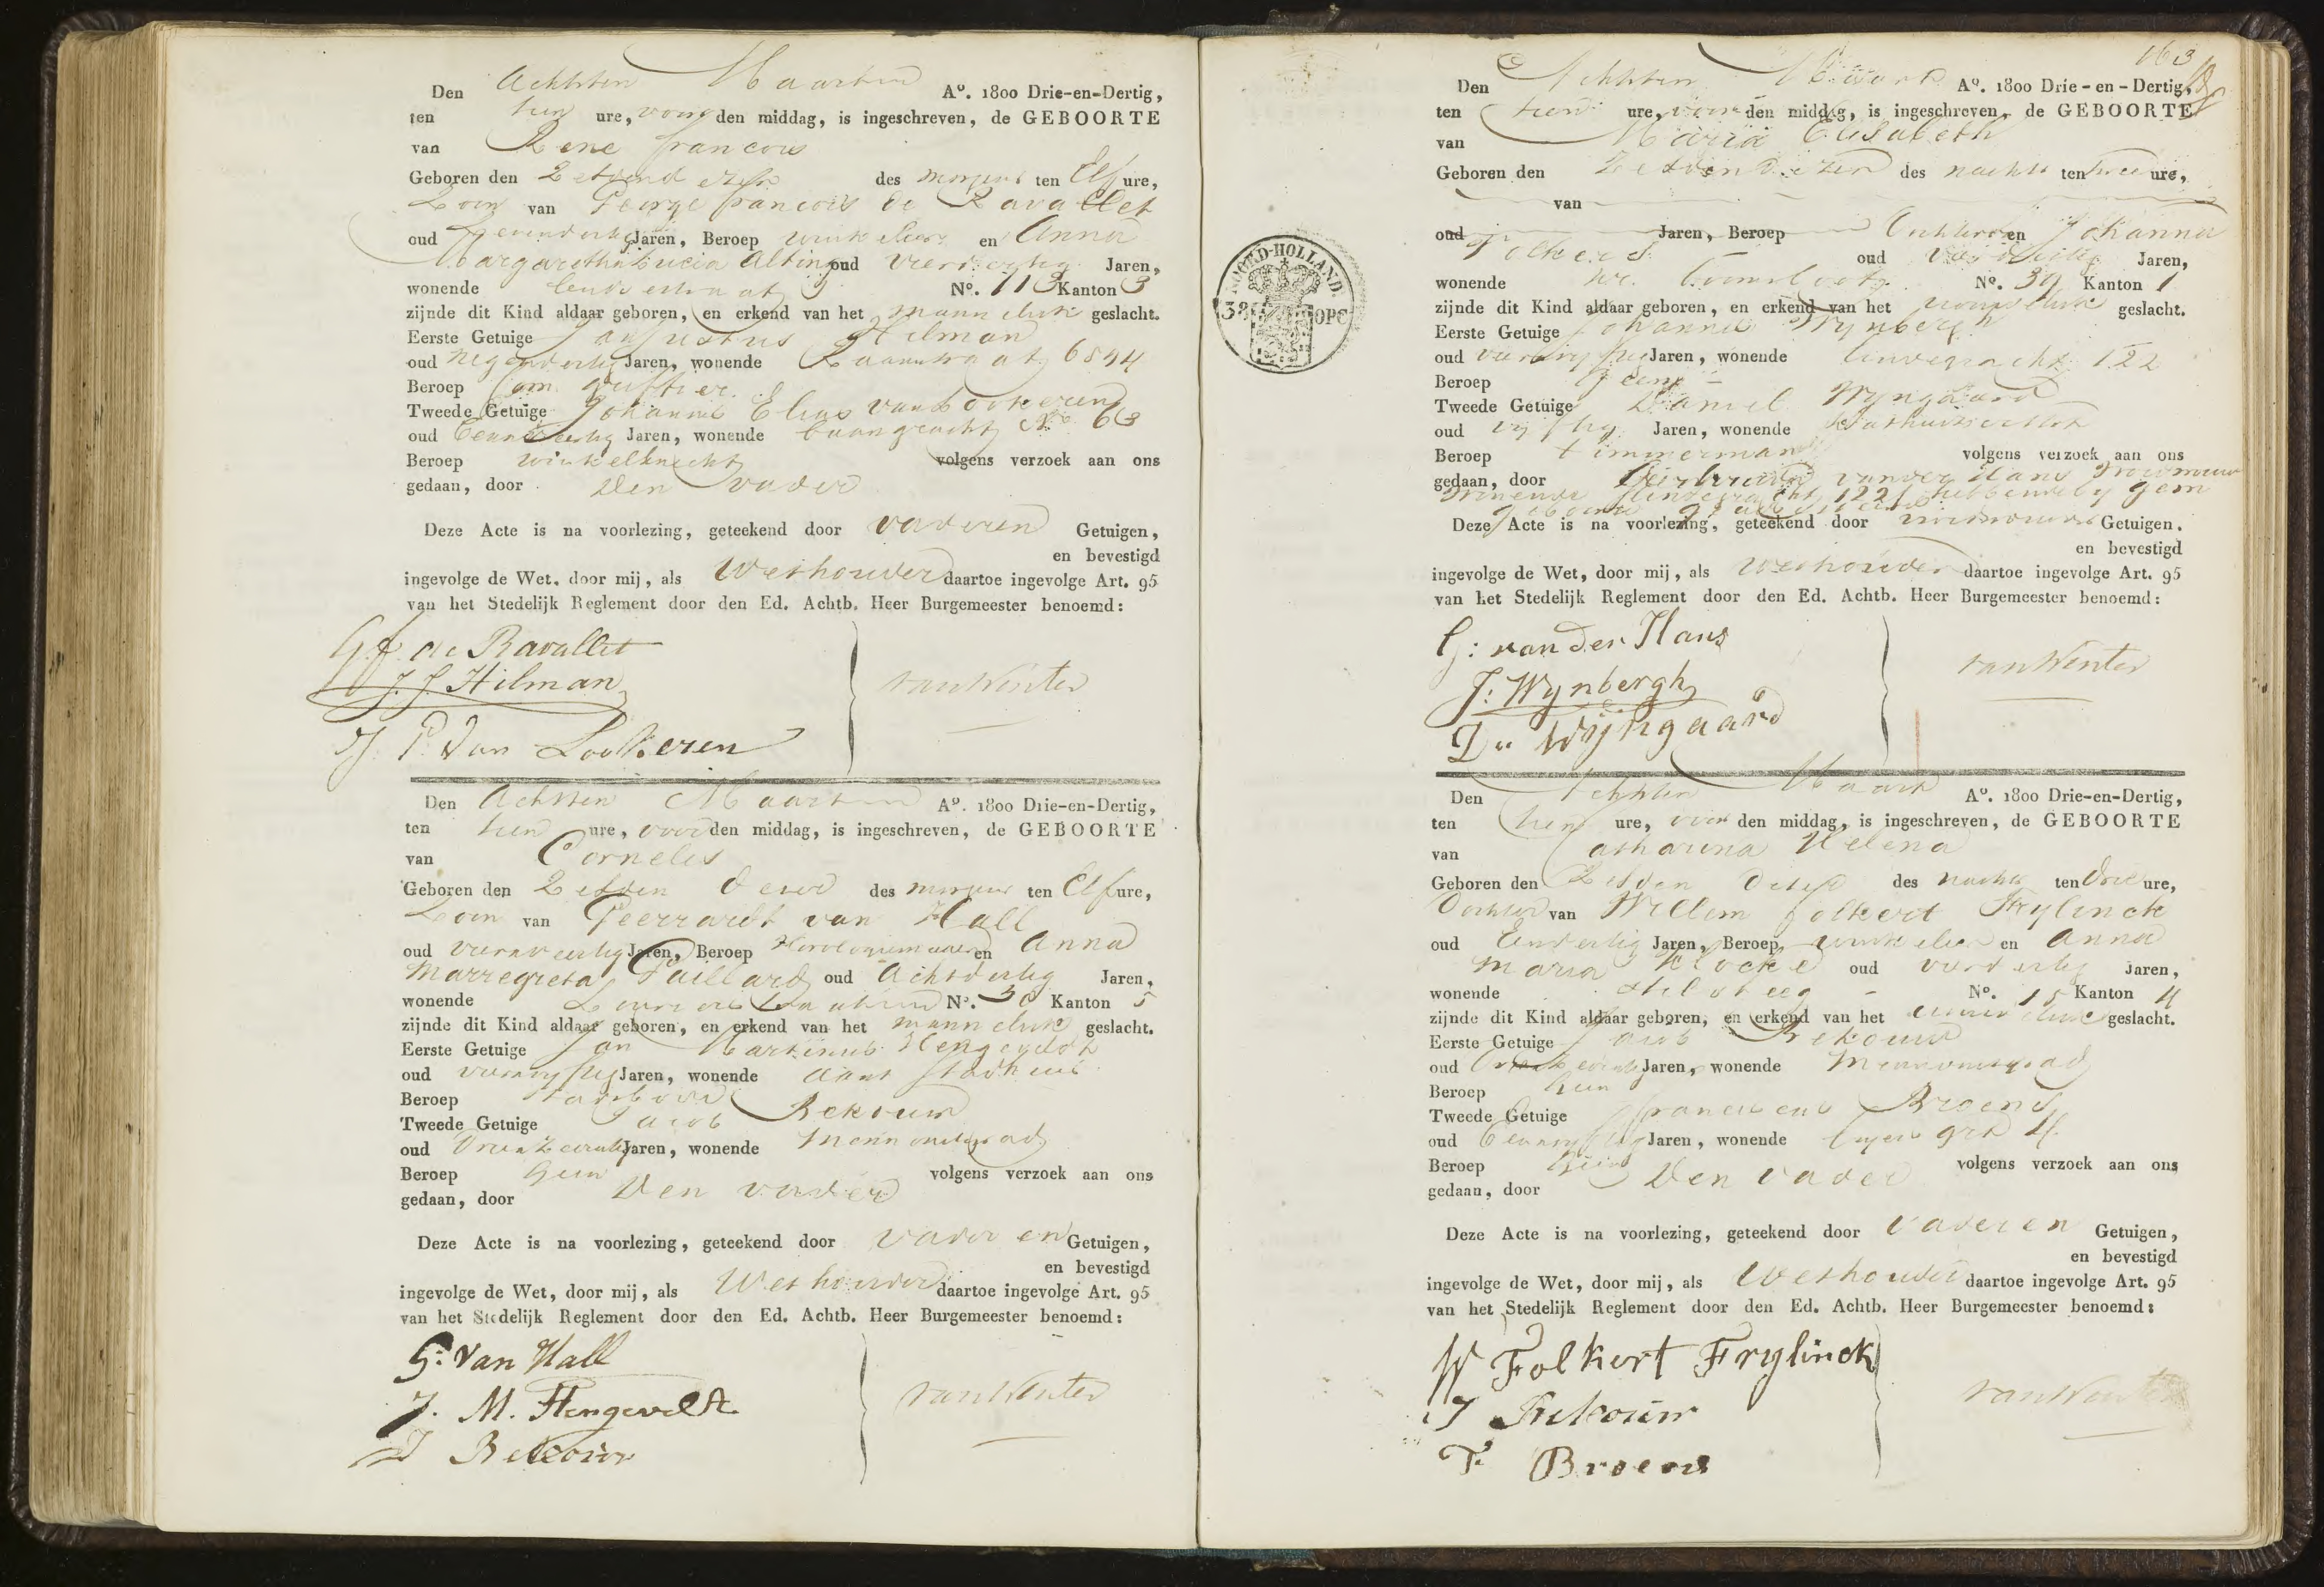 Den Achtsten Maart A°. 1800 Drie-en-Dertig,
ten tien ure, voor den middag, is ingeschreven, de GEBOORTE
van Rene francois
Geboren den Zesden dezer des morgens ten Elf ure,
Zoon van George francois de Ravallet
oud Jaren, Beroep winkelier en Anna
Margaretha Lucia Alting oud vierdertig Jaren,
wonende N°. 113 Kanton 3
zijnde dit Kind aldaar geboren, en erkend van het mannelijk geslacht.
Eerste Getuige Hilman
oud negendertig Jaren, wonende 6844
Beroep Com. griffier
Tweede Getuige Johannes Elias van Lookeren
oud Jaren, wonende Baangracht N° 63
Beroep winkelknecht volgens verzoek aan ons
gedaan, door Den vader
Deze Acte is na voorlezing, geteekend door vader en Getuigen,
en bevestigd
ingevolge de Wet, door mij, als Wethouder daartoe ingevolge Art. 95
van het Stedelijk Reglement door den Ed. Achtb. Heer Burgemeester benoemd:
G.f. de Ravallet
J. J. Hilman
van Winter
J. P. Van Lookeren
Den Achtsten Maart A°. 1800 Drie-en-Dertig,
ten tien ure, voor den middag, is ingeschreven, de GEBOORTE
van Cornelis
Geboren den Zesden dezer des morgens ten Elf ure,
Zoon van Geerardt van Hall
oud vierenveertig Jaren, Beroep Horologiemaker en Anna
Marregreta Paillard oud Achtdertig Jaren,
wonende N°. 36 Kanton 5
zijnde dit Kind aldaar geboren, en erkend van het mannelijk geslacht.
Eerste Getuige Jan Martinus Hengeveldt
oud vierenvyftig Jaren, wonende aant stadhuis
Beroep
Tweede Getuige Jacob Bekouw
oud Jaren, wonende
Beroep Geen volgens verzoek aan ons
gedaan, door Den vader
Deze Acte is na voorlezing, geteekend door vader en Getuigen,
en bevestigd
ingevolge de Wet, door mij, als Wethouder daartoe ingevolge Art. 95
van het Stedelijk Reglement door den Ed. Achtb. Heer Burgemeester benoemd:
G: Van Hall
J. M. Hengeveldt
van Winter
J Bekouw
163
Den Achtsten Maart A°. 1800 Drie-en-Dertig,
ten tien ure, voor den middag, is ingeschreven, de GEBOORTE
van Maria Elisabeth
Geboren den Zesden dezer des nachts ten twee ure,
van
oud Jaren, Beroep en Johanna
Folkers oud Jaren,
wonende N°. 39 Kanton 1
zijnde dit Kind aldaar geboren, en erkend van het vrouwelijk geslacht.
Eerste Getuige Johannes Wynbergh
oud Jaren, wonende Lindegracht 122
Beroep Geen
Tweede Getuige Daniel Wyngaard
oud vijftig Jaren, wonende
Beroep timmerman volgens verzoek aan ons
gedaan, door van der Hans vroedvrouw
wonende Lindegracht 122
Deze Acte is na voorlezing, geteekend door vroedvrouw en Getuigen.
en bevestigd
ingevolge de Wet, door mij, als Wethouder daartoe ingevolge Art. 95
van het Stedelijk Reglement door den Ed. Achtb. Heer Burgemeester benoemd:
G: van der Hans
J: Wynbergh
van Winter
D: Wijngaard
NOORD-HOLLAND.
38 OPC
Den Achtsten Maart A°. 1800 Drie-en-Dertig,
ten tien ure, voor den middag, is ingeschreven, de GEBOORTE
van Catharina Helena
Geboren den Zesden dezer des nachts ten drie ure,
Dochter van Willem folkert Frylinck
oud Eendertig Jaren, Beroep winkelier en Anna
Maria Klocke oud vierdertig Jaren,
wonende Hilsteeg N°. 15 Kanton 4
zijnde dit Kind aldaar geboren, en erkend van het geslacht.
Eerste Getuige Jacob Bekouw
oud Jaren, wonende
Beroep Geen
Tweede Getuige franciscus Broens
oud Jaren, wonende
Beroep Geen volgens verzoek aan ons
gedaan, door Den vader
Deze Acte is na voorlezing, geteekend door vader en Getuigen,
en bevestigd
ingevolge de Wet, door mij, als Wethouder daartoe ingevolge Art. 95
van het Stedelijk Reglement door den Ed. Achtb. Heer Burgemeester benoemd:
W Folkert Frylinck
J Bekouw
van Winter
F. Broens